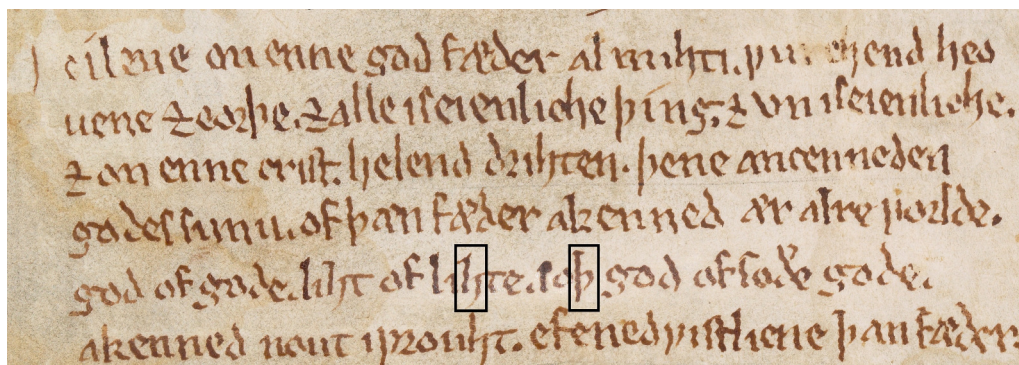 c ileue on enne god fæder almihti. ƿurchend heo
uene ⁊ eorþe. ⁊ alle iseienliche þing. ⁊ vniseienliche.
⁊ on enne crist. helend drihten. þene ancenneden
godes sunu. of þan fæder akenned ær alre ƿorlde.
god of gode. liht of lihte. soþ god of soðe gode.
akenned nout iƿrouht. efenedƿistlicne þan fæder.